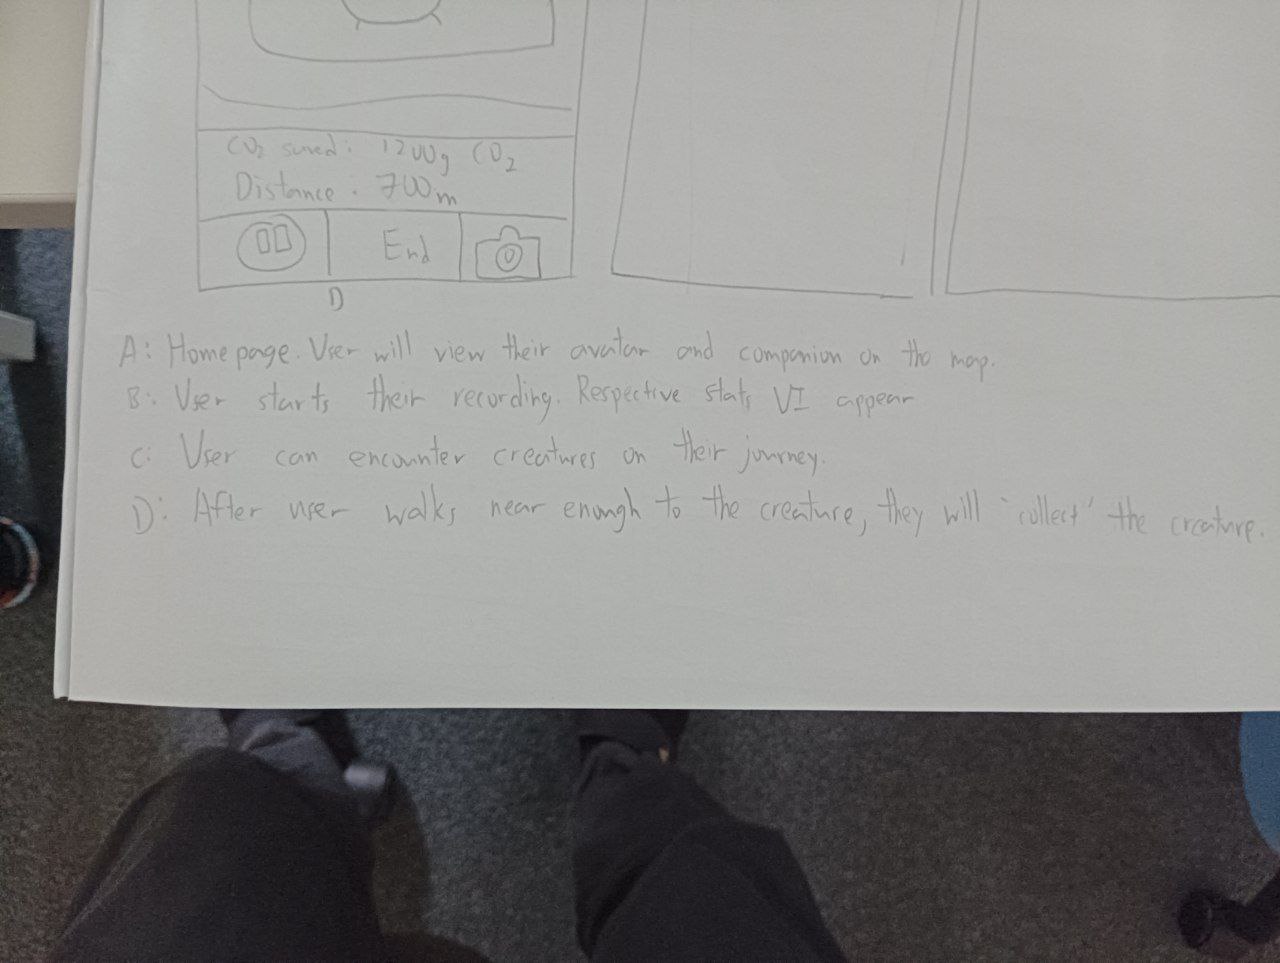 CO2 saved: 1200g CO2
Distance: 700m
End
D
A: Homepage. User will view their avatar and companion on the map.
B: User starts their recording. Respective stats UI appear
C: User can encounter creatures on their journey.
D: After user walks near enough to the creature, they will 'collect' the creature.